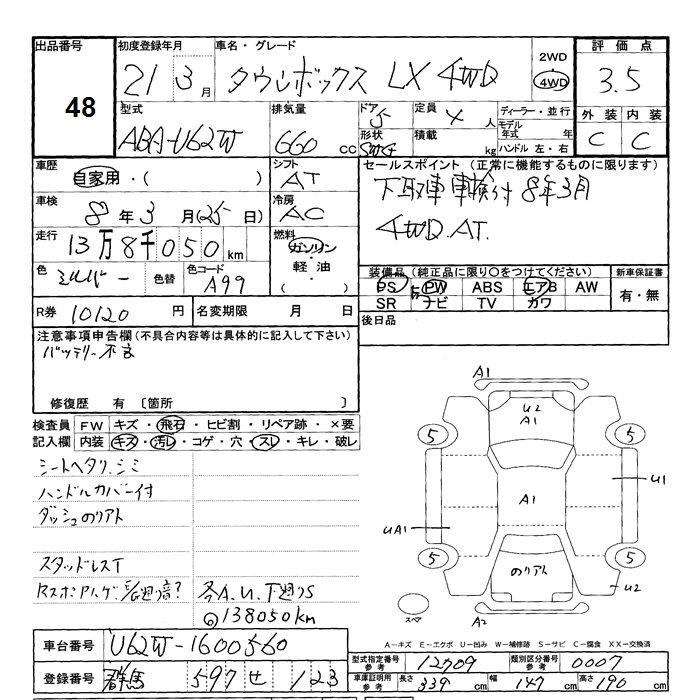 出品番号
48
初度登録年月
21 3月
車名・グレード
タウンボックス LX 4WD
2WD
4WD
評価点
3.5
外装 内装
C C
型式
ABA-U62W
排気量
660 cc
ドア
5
形状
定員
4 人
積載
kg
ディーラー・並行
モデル年式 年
ハンドル 左・右
車歴
自家用・( )
シフト
AT
セールスポイント (正常に機能するものに限ります)
下取車 車検付 8年3月
4WD.AT.
車検
8年3月(25日)
冷房
AC
走行
13万8千050km
燃料
ガソリン
軽油・
( )
色
シルバー
色替
色コード
A99
装備品(純正品に限り〇をつけてください)
PS PW ABS エアB AW
SR ナビ TV カワ
新車保証書
有・無
R券 10120 円
名変期限 月 日
後日品
注意事項申告欄(不具合内容等は具体的に記入して下さい)
バッテリー不良
修復歴 有 〔箇所 〕
検査員記入欄
FW キズ・飛石・ヒビ割・リペア跡・×要
内装 キズ・汚レ・コゲ・穴・スレ・キレ・破レ
シートヘタリ.シミ
ハンドルカバー付
ダッシュのリアト
スタッドレスT
各A.U.下廻りS
138050km
A1
U2
A1
5
5
U1
A1
UA1
5
5
のリアト
U2
スペア
A2
A-キズ E-エクボ U-凹み W-補修跡 S-サビ C-腐食 XX-交換済
車台番号 U62W-1600560
登録番号 群馬 597 せ 123
型式指定番号 参考 12709
類別区分番号 参考 0007
車庫証明用 参考 長さ 339 cm 幅 147 cm 高さ 190 cm